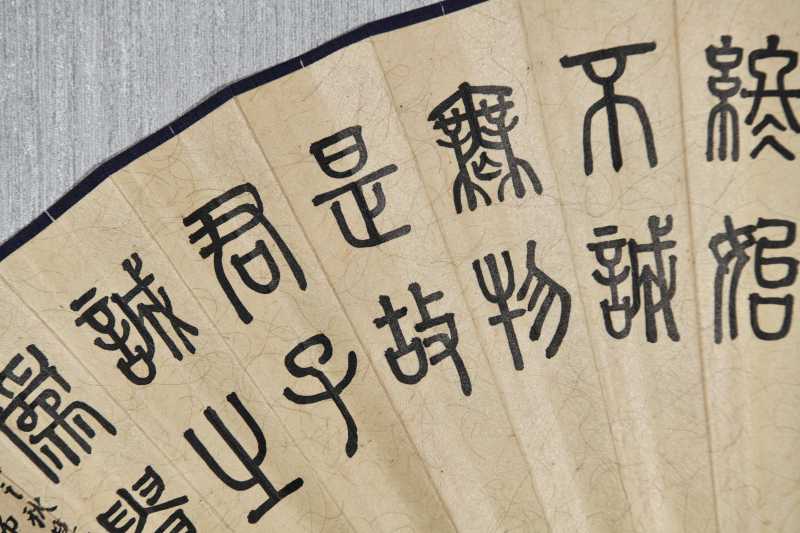 終始
不誠
無物
是故
君子
誠之
為貴
秋